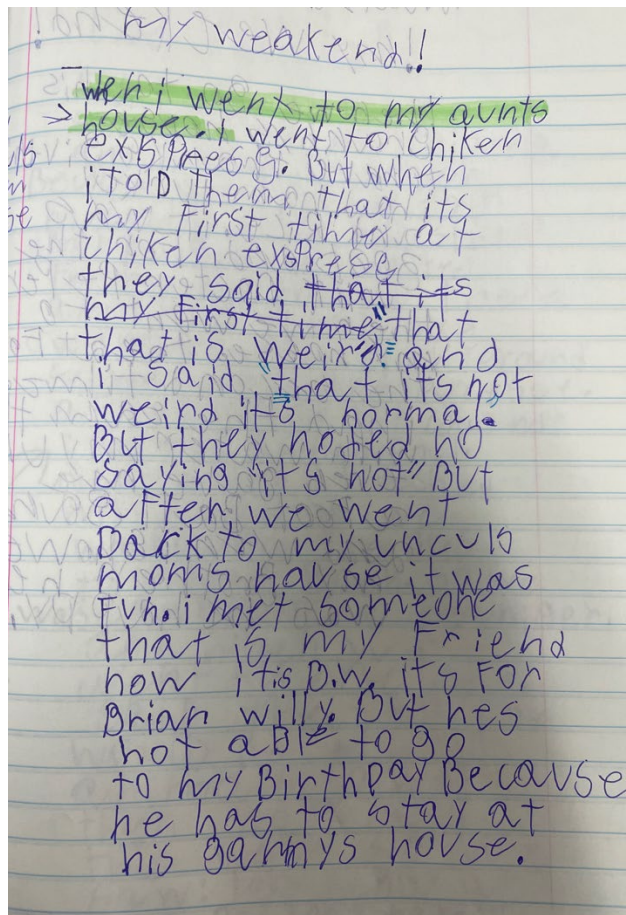 my weakend!!
wen i went to my aunts
house. I went to chiken
exspreess. But when
i tolD them that its
my First time at
chiken exsprese
they said that its
my first time "that
that is weird" and
i said "that its not
weird its normal."
But they noded no
saying "its not" But
after we went
Back to my unculs
moms hause it was
Fun. i met someone
that is my Friend
now itis B.W. its For
Brian willy. But hes
not aBle to go
to my BirthDay Because
he has to stay at
his gammys house.